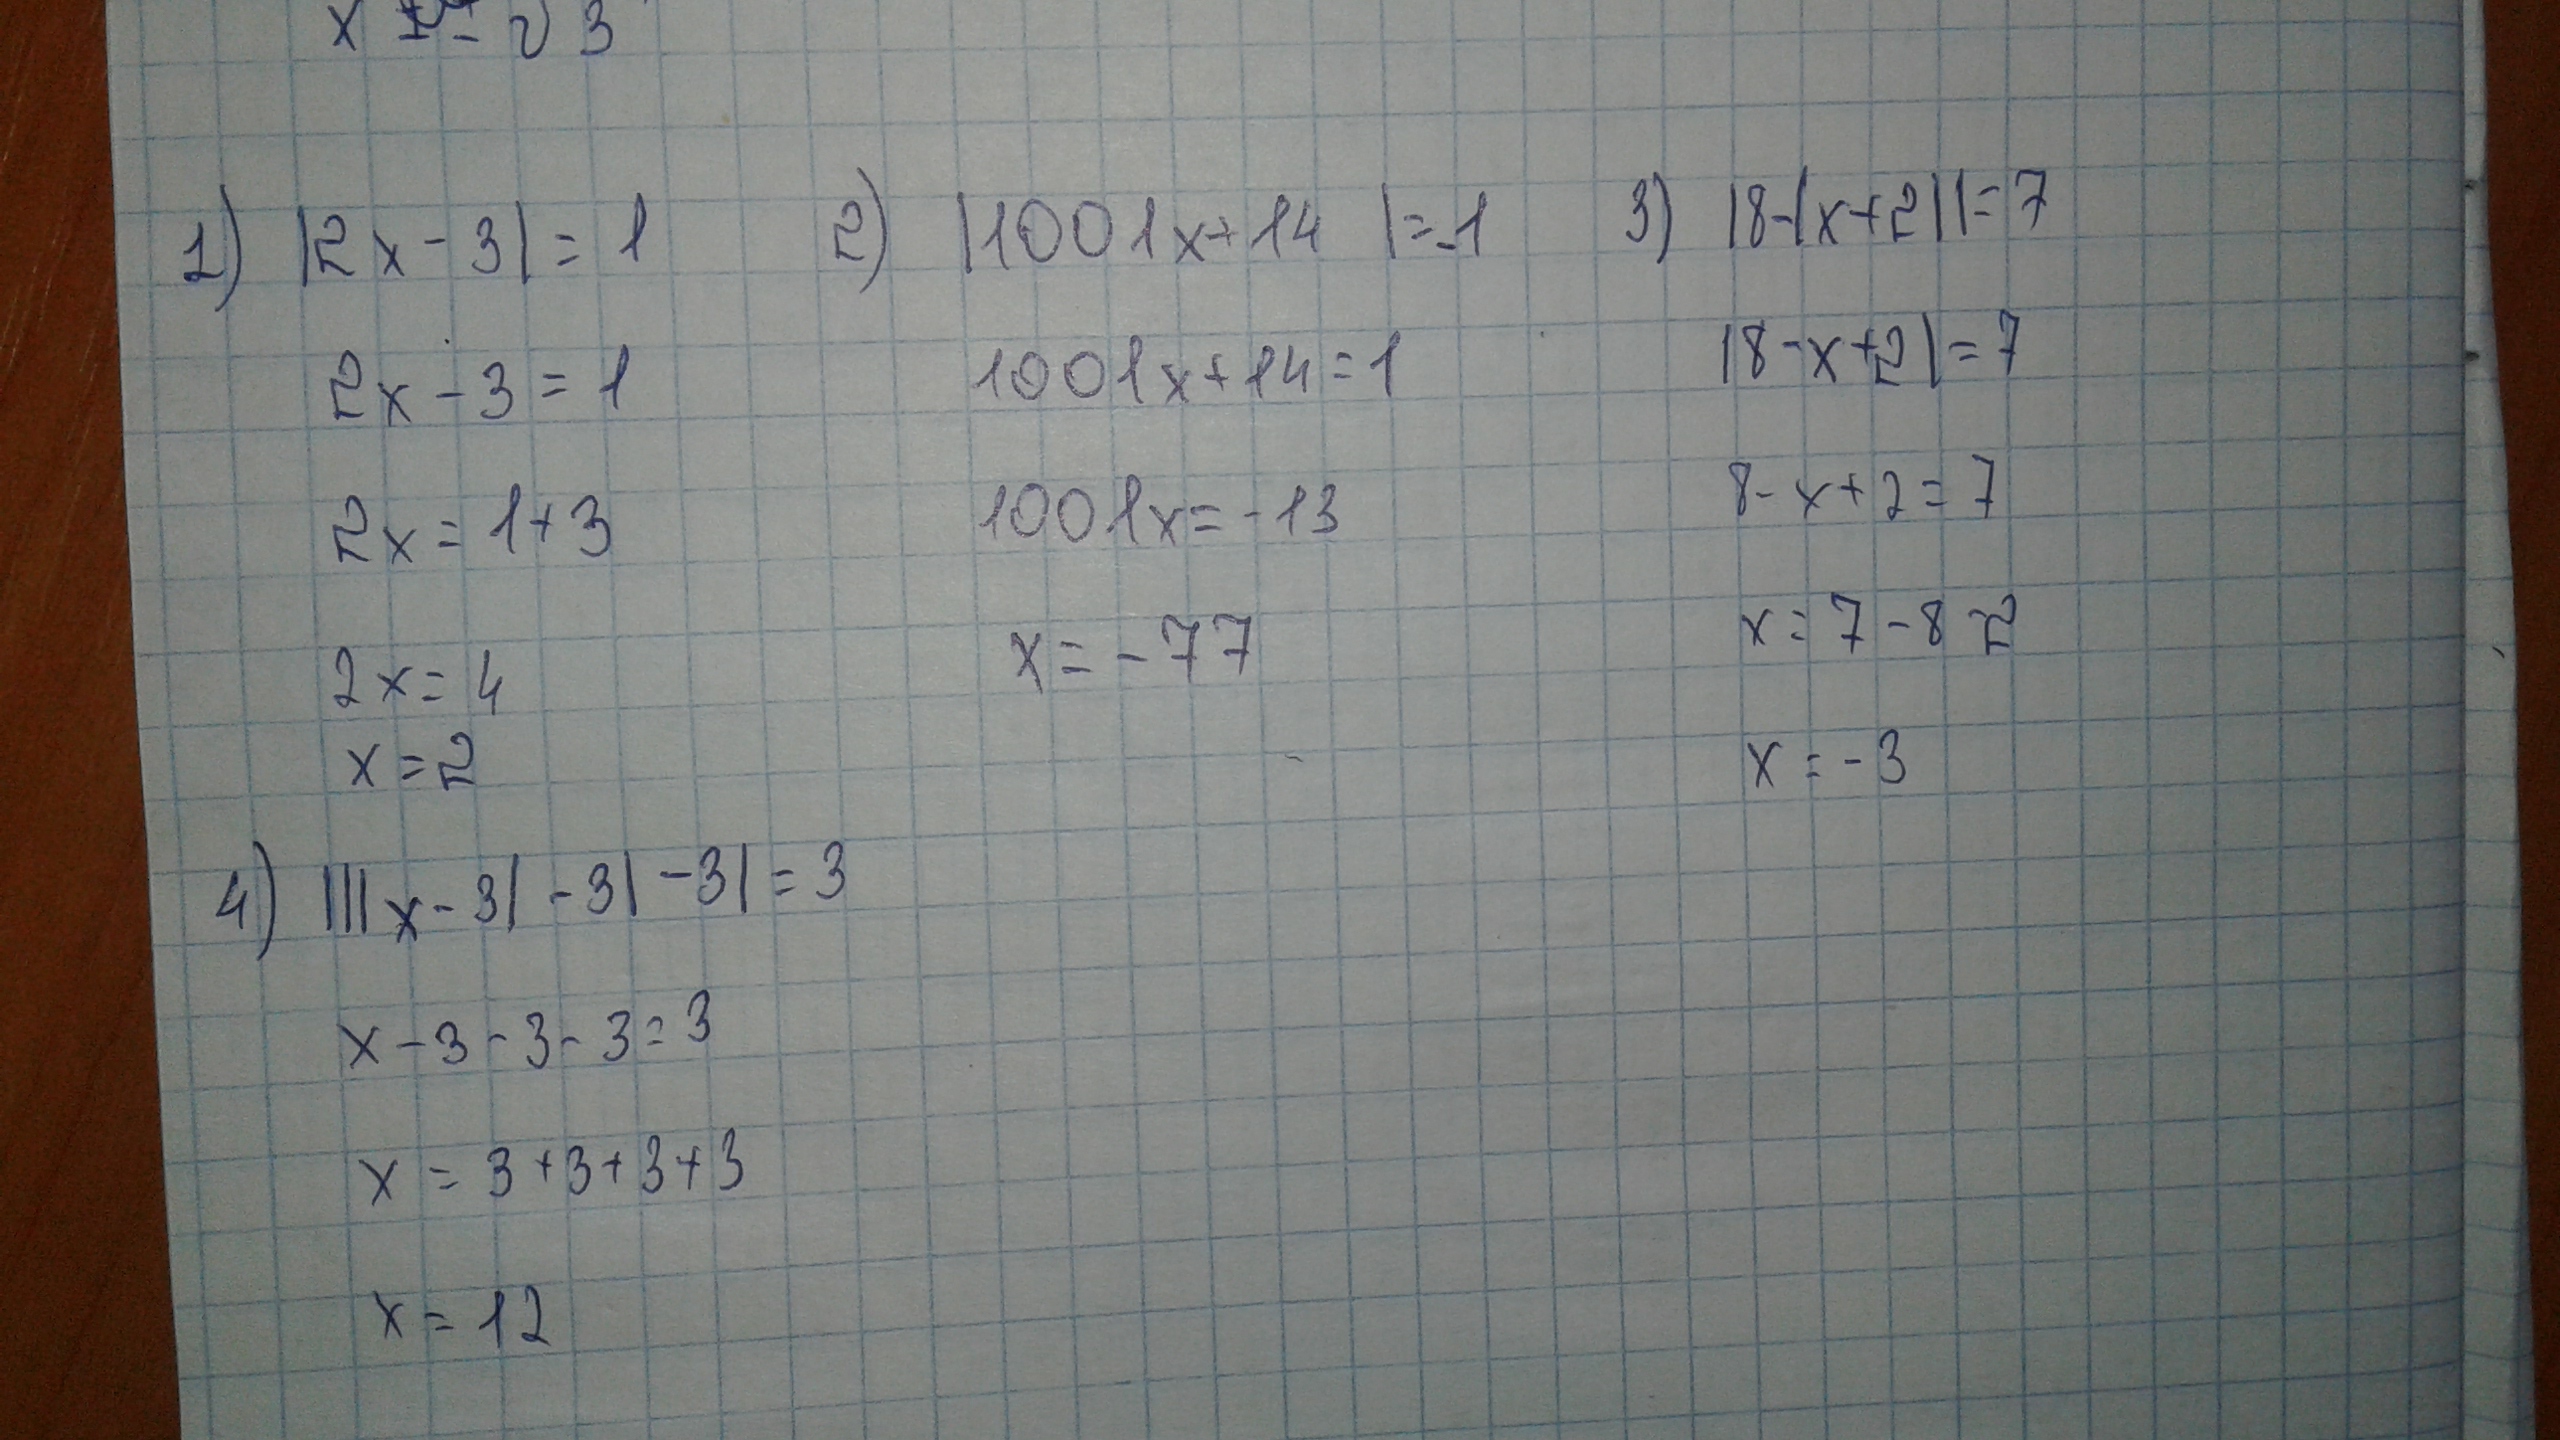 1) |2x-3|=1
2x-3=1
2x=1+3
2x=4
x=2
2) |1001x+14 |=-1
1001x+14=1
1001x=-13
x=-77
3) |8-|x+2||=7
|8-x+2|=7
8-x+2=7
x=7-8 2
x=-3
4) |||x-3|-3|-3|=3
x-3-3-3=3
x=3+3+3+3
x=12